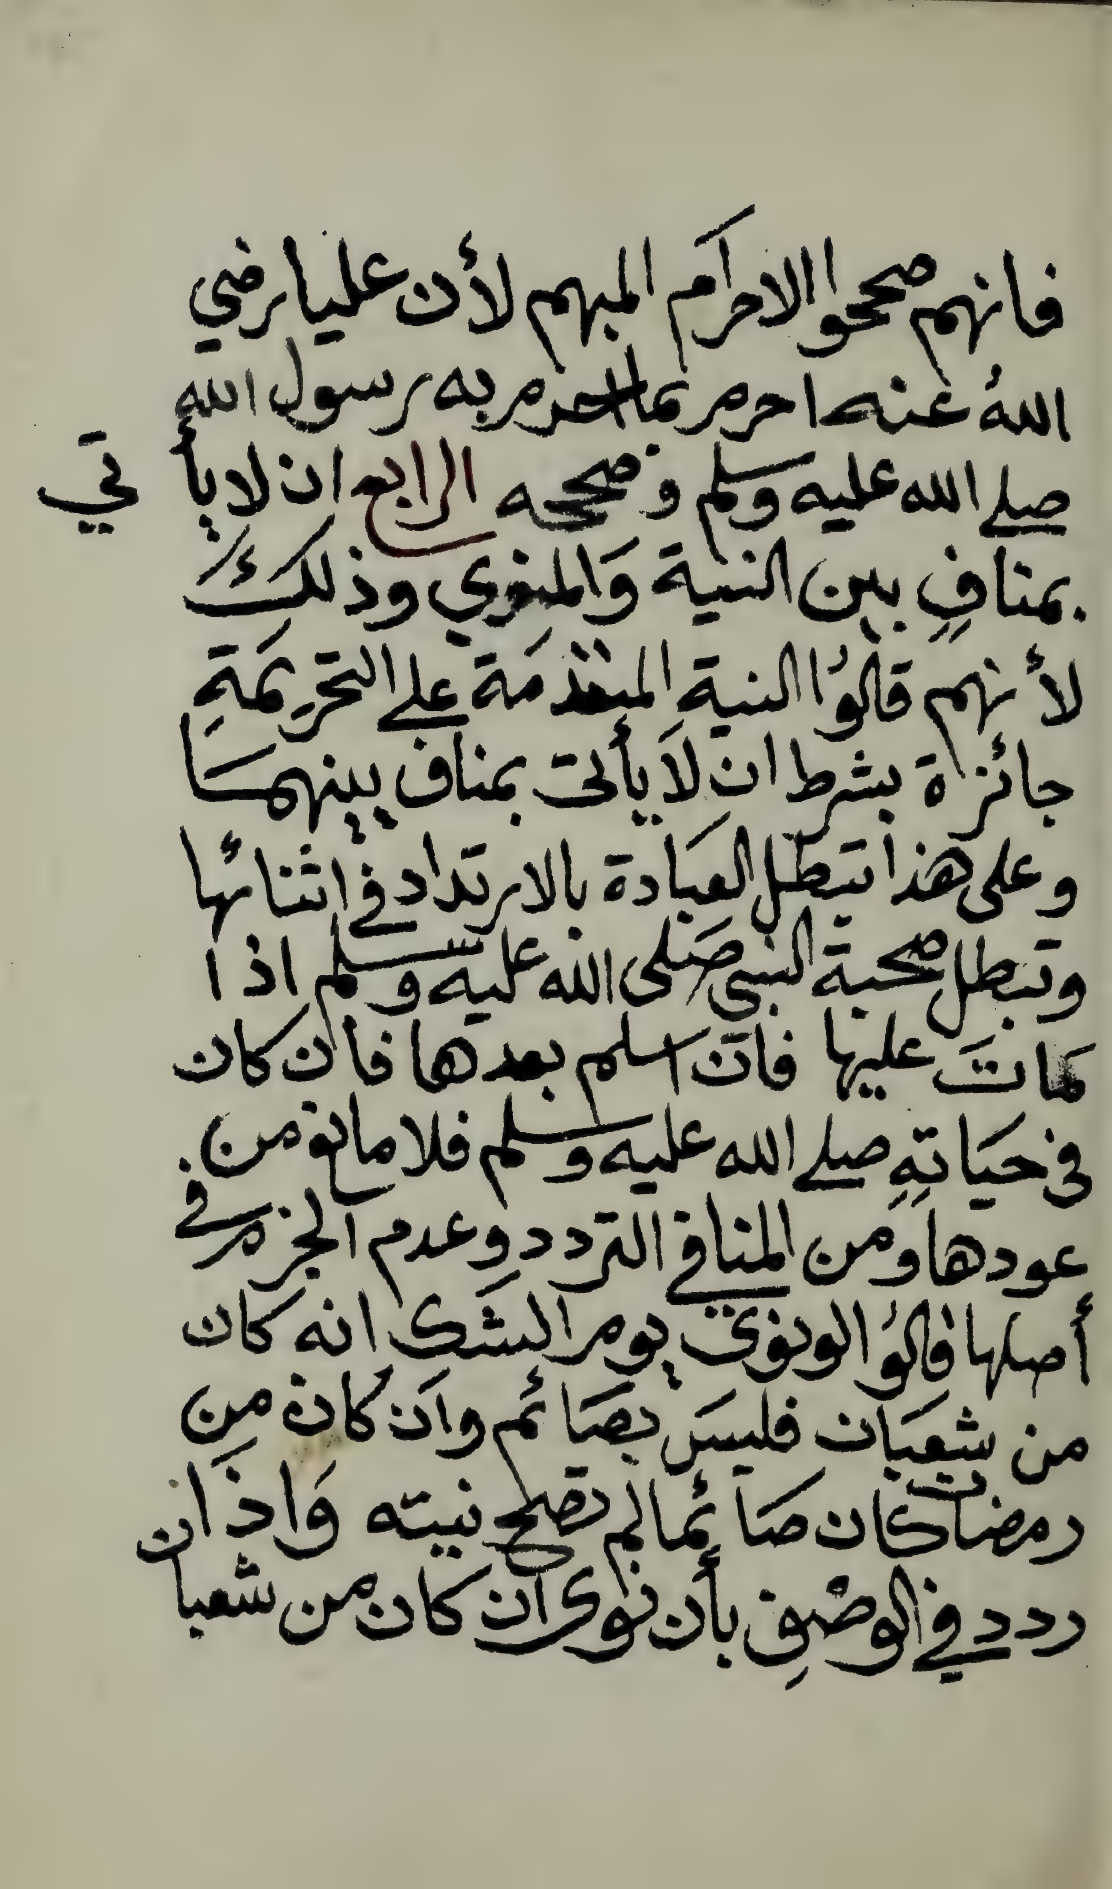 فانهم صححوا الاحرام المبهم لأن عليا رضي
اللهُ عنه احرم بما احرم به رسول الله
صلى الله عليه وسلم وصححه الرابع ان لا يأتي
بمنافٍ بين النية وَالمنوي وذلك
لأنهم قالوُا النية المتقدمَة على التحريمَةِ
جائزة بشرط ان لاَ يأتى بمناف بينهمَا
وعلى هذا تبطل العبَادة بالارتداد في اثنائها
وتبطل صحبة النبي صَلى الله عليه وسلم اذا
مَات عليها فان اسلم بعدها فان كان
في حيَاتهِ صلى الله عليه وسلم فلا مانع من
عودها ومن المنافي التردد وعدم الجزم في
أصلها قالوُا لو نوى يوم الشك انه كان
من شعبَان فليسَ بصَائم وان كان من
رمضان كان صَائما لم تصح نيته وَاذا ان
ردد في الوصْفِ بأن نوى ان كان من شعبان